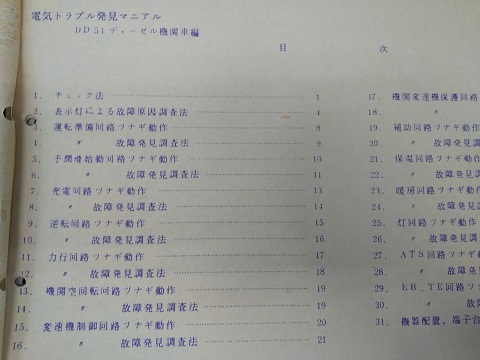 電気トラブル発見マニアル
DD51ディーゼル機関車編
目 次
1. チェック法 1
2. 表示灯による故障原因調査法 4
3. 運転準備回路ツナギ動作 8
4. 〃 故障発見調査法 9
5. 予潤滑始動回路ツナギ動作 10
6. 〃 故障発見調査法 11
7. 充電回路ツナギ動作 13
8. 〃 故障発見調査法 14
9. 逆転回路ツナギ動作 15
10. 〃 故障発見調査法 16
11. 力行回路ツナギ動作 17
12. 〃 故障発見調査法 18
13. 機関空回転回路ツナギ動作 19
14. 〃 故障発見調査法 19
15. 変速機制御回路ツナギ動作 20
16. 〃 故障発見調査法 21
17. 機関変速機保護回路
18. 〃 故障
19. 補助回路ツナギ動
20. 〃 故障発見
21. 保温回路ツナギ動
22. 〃 故障発見
23. 暖房回路ツナギ動
24. 〃 故障発見
25. 灯回路ツナギ動作
26. 〃 故障発見調
27. ATS回路ツナギ
28. 〃 故障発
29. EB、TE回路ツ
30. 〃 故
31. 機器配置、端子台